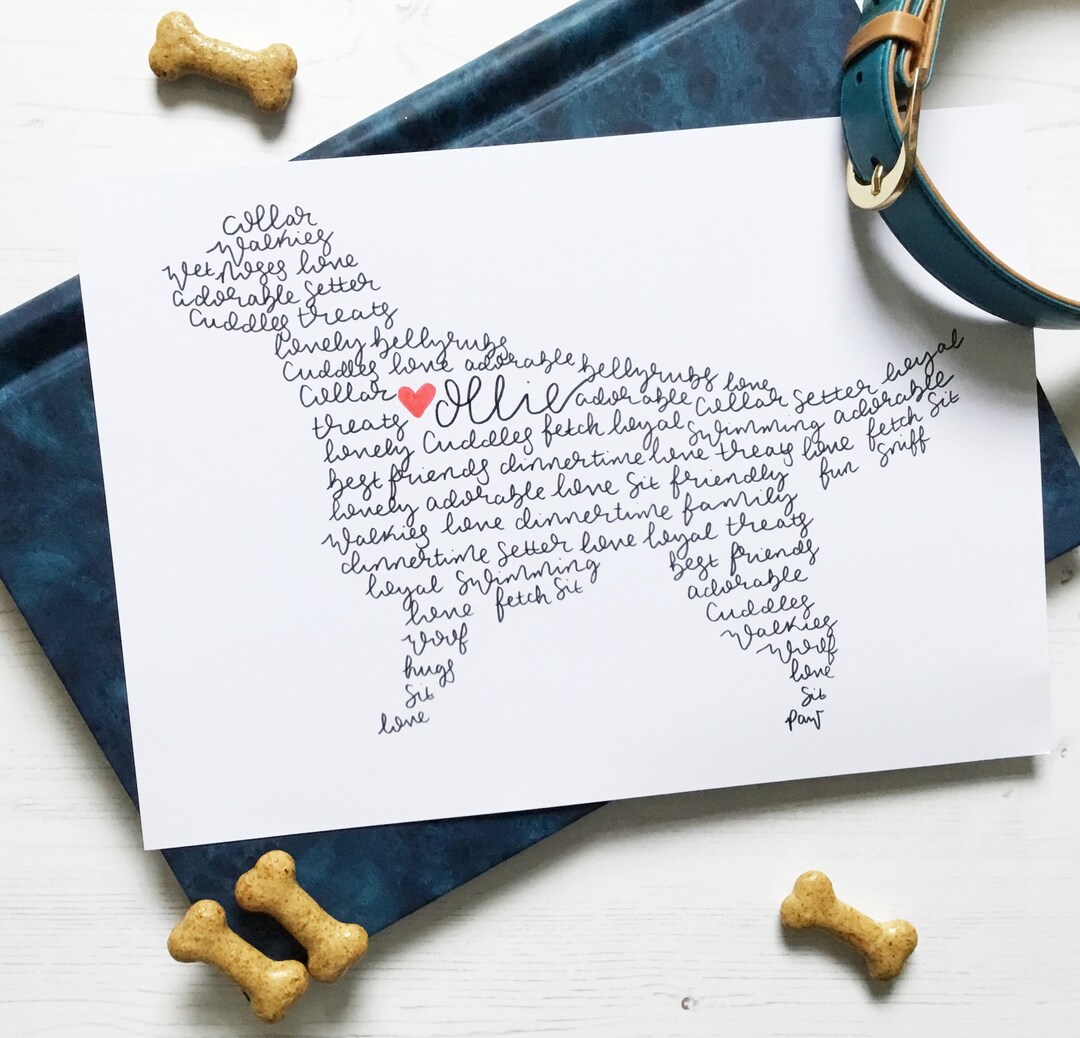 Collar
Walkies
Wet Noses love
adorable Setter
Cuddles treats
lovely bellyrubs
Cuddles love adorable bellyrubs love
Collar Ollie adorable Collar Setter loyal
treats Cuddles fetch loyal Swimming adorable
lovely best friends dinnertime love treats love fetch Sit
lovely adorable love Sit friendly fun Sniff
Walkies love dinnertime family
dinnertime Setter love loyal treats
loyal Swimming best friends
love fetch Sit adorable
Woof Cuddles
hugs Walkies
Sit Woof
love love
Sit
paw